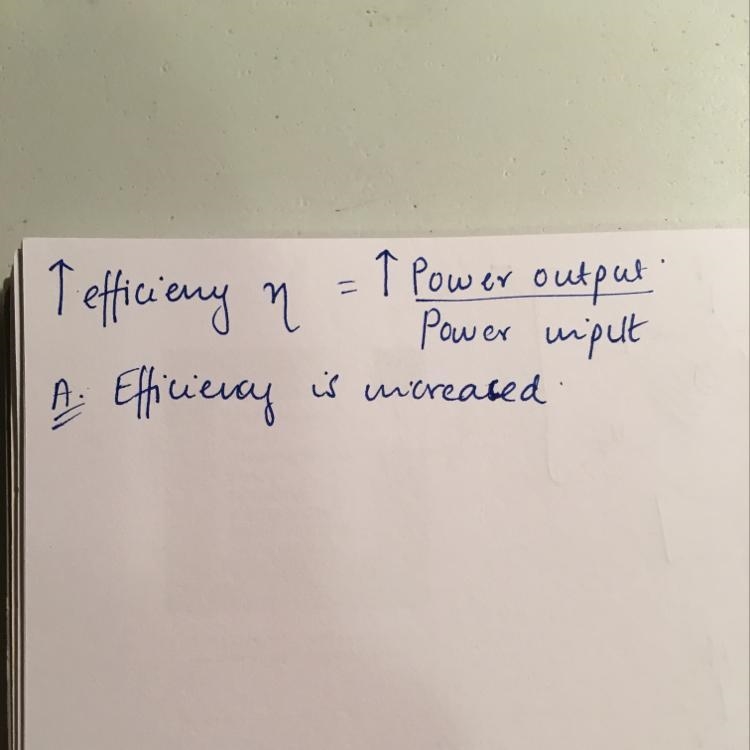 ↑ efficiency η = ↑ Power output
Power input
A. Efficiency is increased.